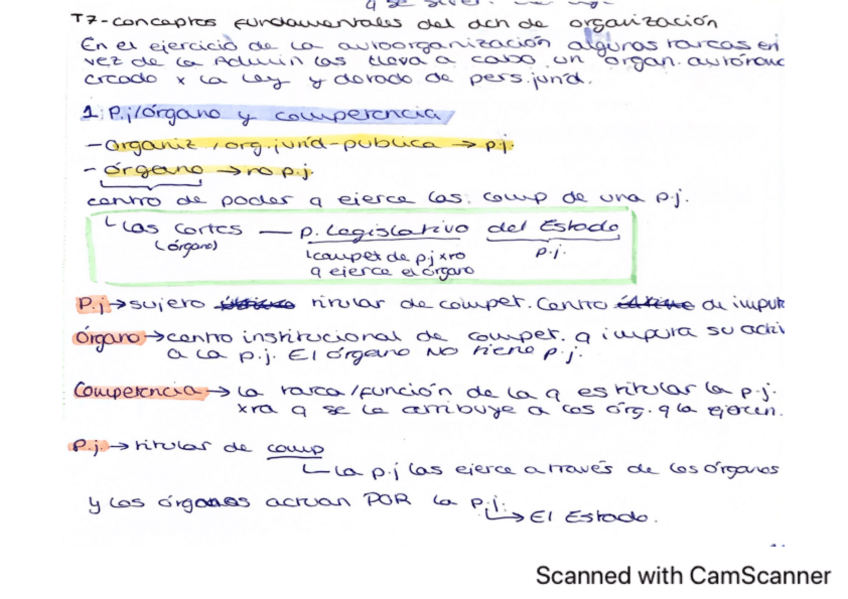 T7-conceptos fundamentales del dcn de organización
En el ejercicio de la autoorganización algunas tareas en
vez de la Admin las lleva a cabo un organ.
creado x la ley y dotado de pers.jurid.
1. P.j/órgano y competencia
- Organiz / org.jurid-publica → p.j.
- órgano → no p.j.
centro de poder q ejerce las comp de una p.j.
Las Cortes — p. Legislativo del Estado
(órgano)
compet de pj xro
p.j.
q ejerce el órgano
P.j → sujeto titular de compet. Centro de
Órgano → centro institucional de compet. q imputa su
a la p.j. El órgano NO tiene p.j.
Competencia → la tarea/función de la q es titular la p.j.
xra q se le atribuye a los órg. q la ejercen.
P.j → titular de comp
la p.j las ejerce a través de los órganos
y los órganos actuan POR la p.j.
→ El Estado.
Scanned with CamScanner